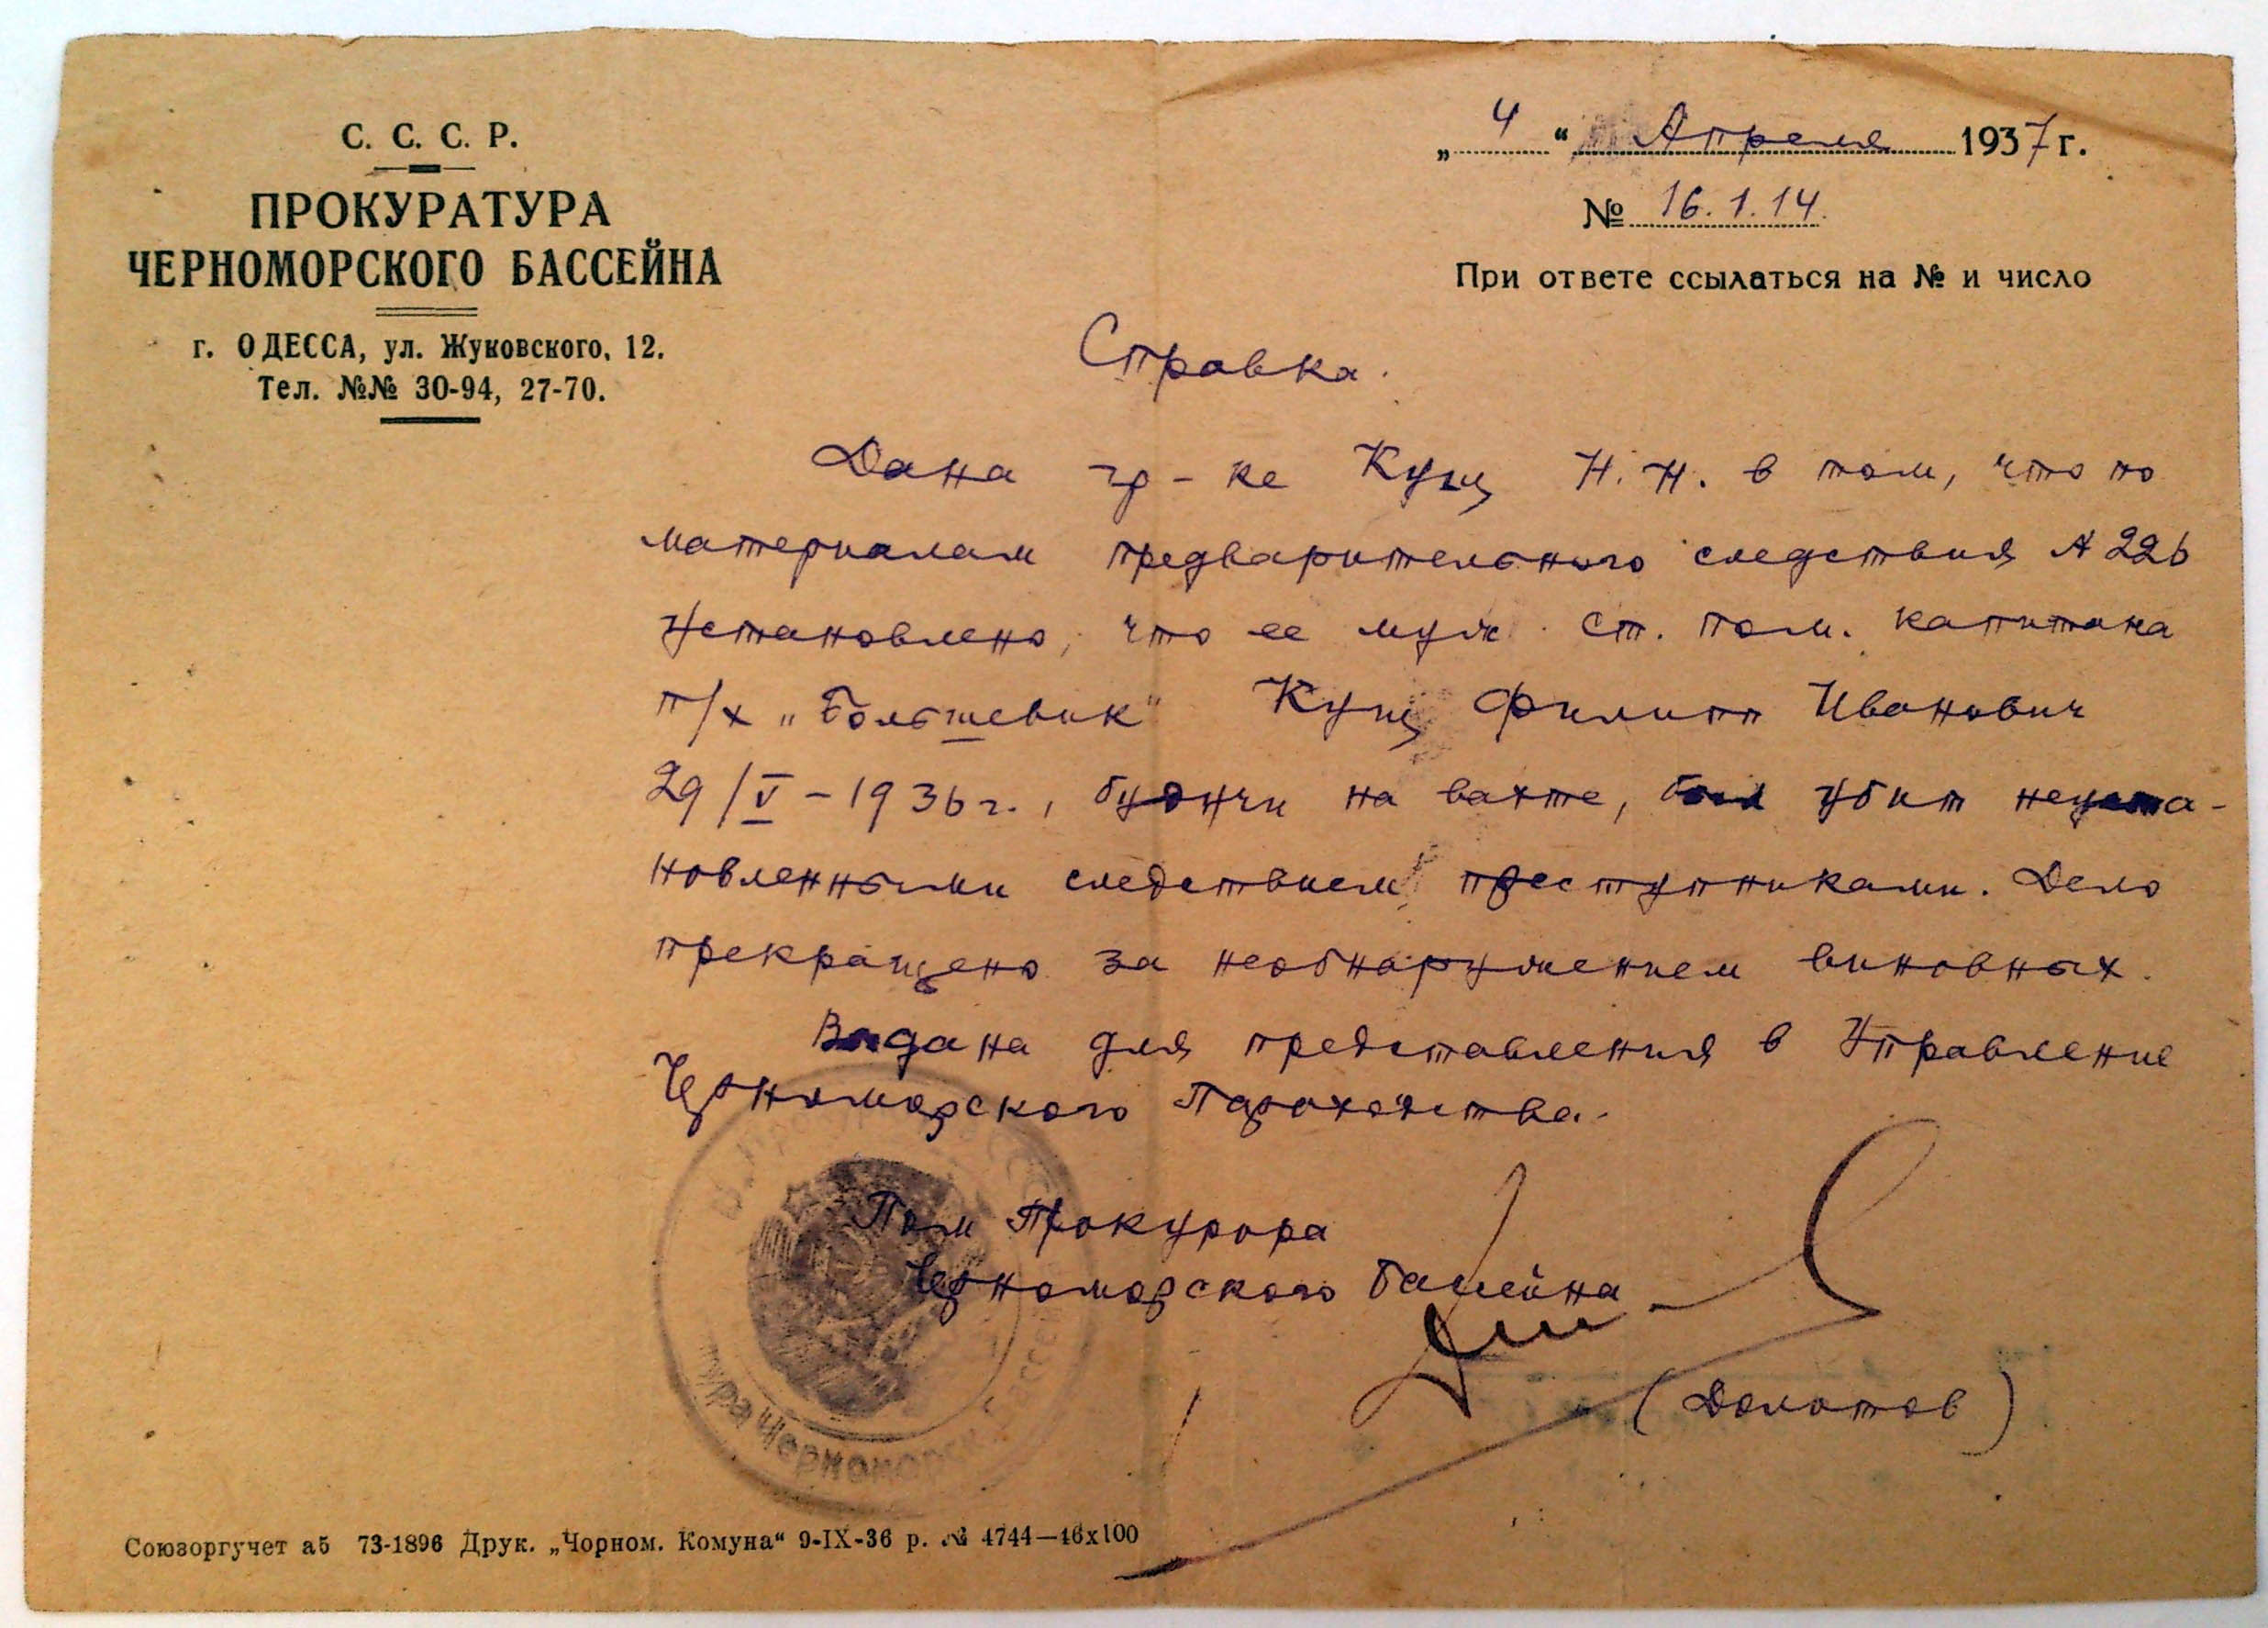 С. С. С. Р.
ПРОКУРАТУРА
ЧЕРНОМОРСКОГО БАССЕЙНА
г. ОДЕССА, ул. Жуковского, 12.
Тел. №№ 30-94, 27-70.
„ 4 “ Апреля 1937 г.
№ 16.1.14.
При ответе ссылаться на № и число
Справка.
Дана гр-ке Кущ Н.Н. в том, что по
материалам предварительного следствия № 226
установлено, что ее муж ст. пом. капитана
п/х „Большевик“ Кущ Филипп Иванович
29/V – 1936 г., будучи на вахте, был убит неуста-
новленными следствием преступниками. Дело
прекращено за необнаружением виновных.
Выдана для представления в Управление
Черноморского Пароходства.
Пом Прокурора
Черноморского бассейна
(Долотов)
тура Черноморск
Союзоргучет а5 73-1896 Друк. „Чорном. Комуна“ 9-IX-36 р. № 4744—46х100